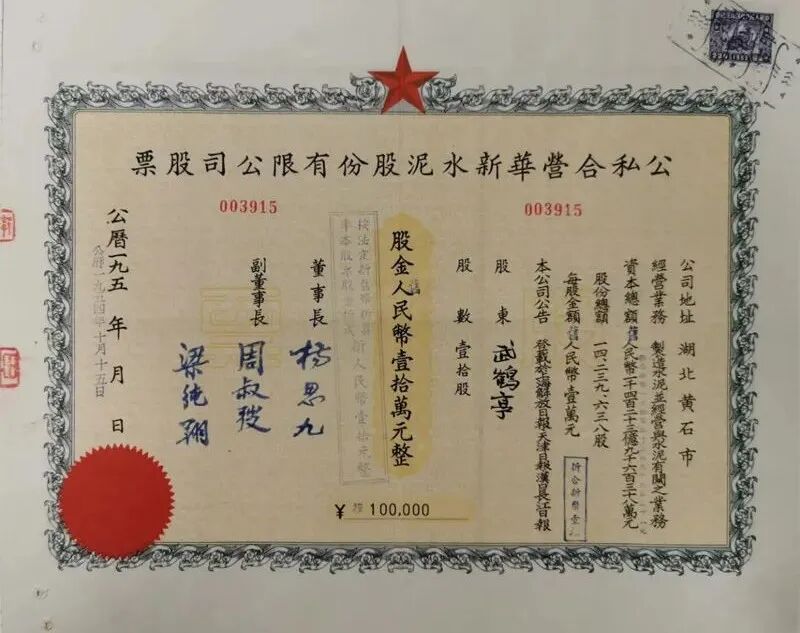 公私合營華新水泥股份有限公司股票
003915
003915
公司地址 湖北黄石市
經營業務 製造水泥並經營與水泥有關之業務
資本總額舊人民幣一千四百二十三億九千六百三十八萬元
股份總額 一四、二三九、六三八股
每股金額舊人民幣壹萬元
折合新幣壹元
本公司公告 登載於上海解放日報天津日報漢口長江日報
股東 武鶴亭
股數 壹拾股
股金舊人民幣壹拾萬元整
按法定折舊幣折算新人民幣壹拾元整
¥ 舊 100,000
董事長 楊思九
副董事長 周叔弢
梁純翔
公曆一九五 年 月 日
公曆一九五四年十月十五日